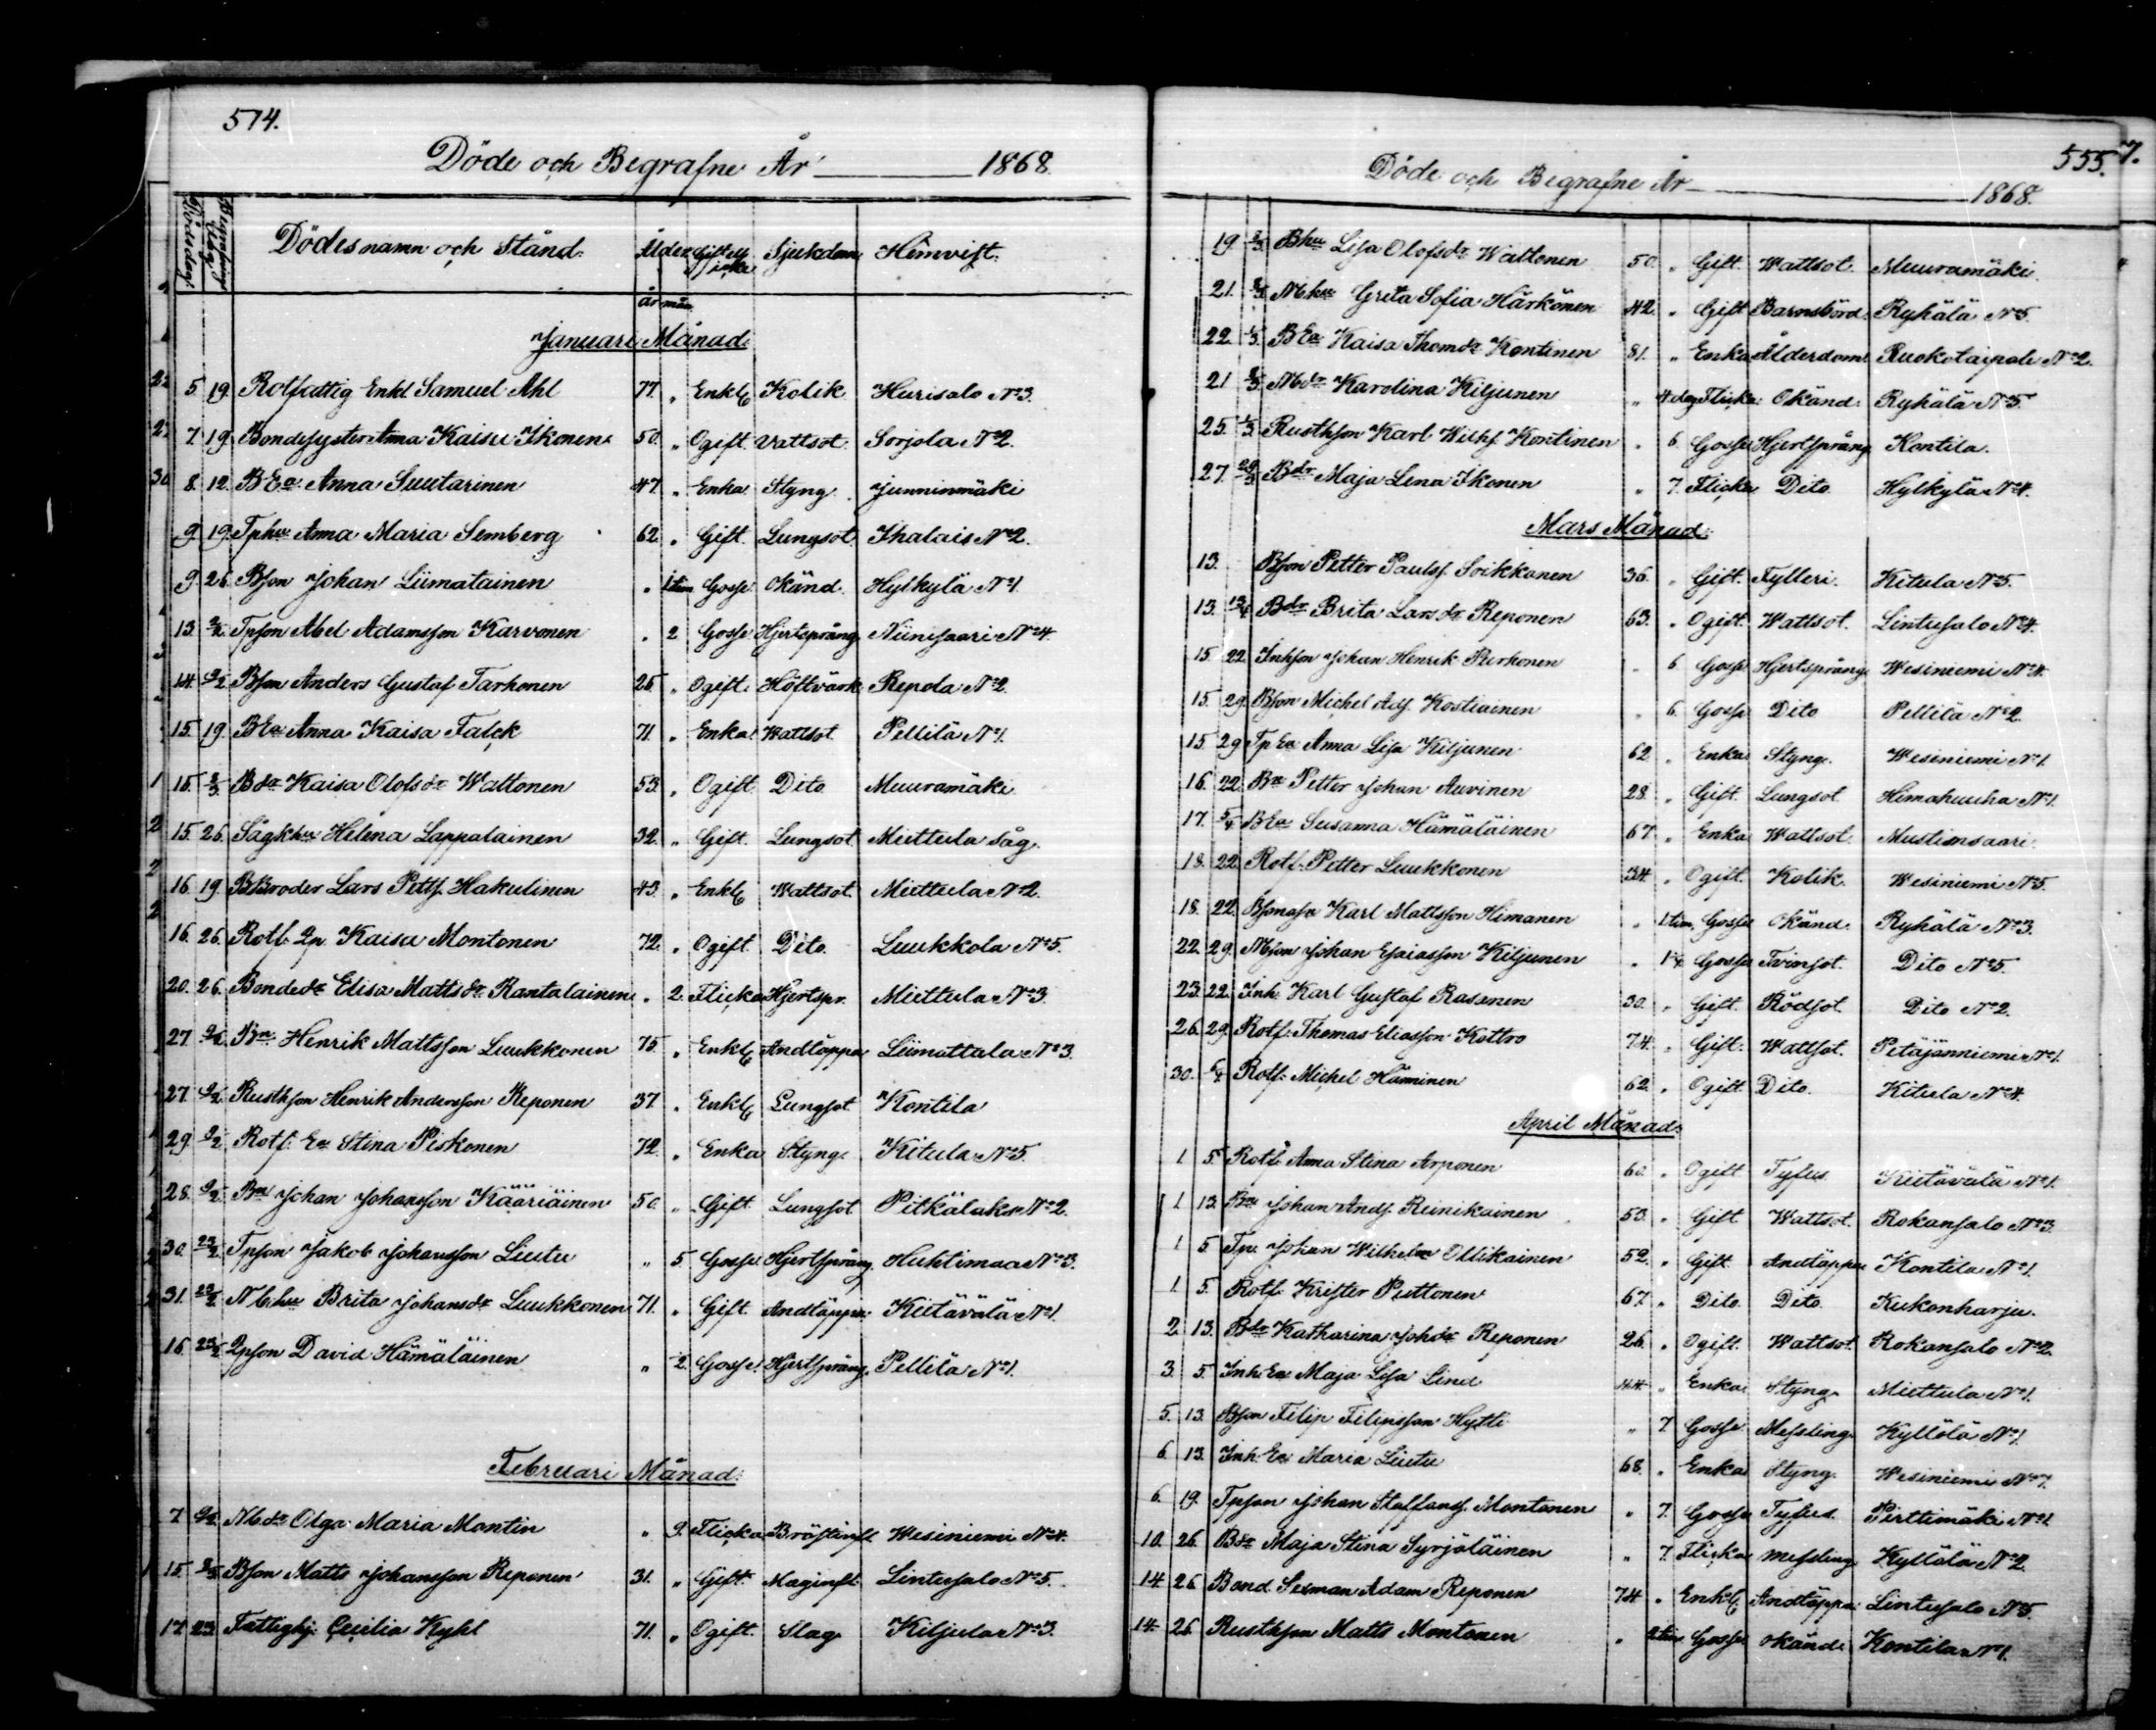 574.
Döde och Begrafne År 1868.
Dödsdag Begrafning Dag Dödes namn och Stånd. Ålder Gift ell. Sjukdom Hemvist.
år mån
Januari Månad.
5. 19. Rotfattig Enkl. Samuel Ahl 77. " Enkl. Kolik Hurisalo No 3.
7. 19. Bondesyster Anna Kaisa Ikonen 50. " Ogift. Vattsot. Sorjola No 2.
8. 12. BEa Anna Suutarinen 47. " Enka Styng. Junninmäki
9. 19. Tphu Anna Maria Semberg 62. " Gift. Lungsot. Ihalais No 2.
9. 26. Bson Johan Liimatainen " 1 tim Gosse Okänd. Hylkylä No 1.
13. 2/2. Tpson Abel Adamsson Karvonen " 2 Gosse Hjertsprång. Niinisaari No 4.
14. 2/2 Bson Anders Gustaf Tarhonen 25. " Ogift. Höftvärk Repola No 2.
15. 19. BEa Anna Kaisa Falck 71. " Enka Wattsot. Pellilä No 1.
15. 2/3. Bdr Kaisa Olofsdr Wattonen 53. " Ogift. Dito Muuramäki
15. 26. Sågkhu Helena Lappalainen 32. " Gift. Lungsot Miettula såg.
16. 19. BBroder Lars Petts. Hakulinen 43. " Enkl. Wattsot. Miettula No 2.
16. 26. Rotf. Qp. Kaisa Montonen 72. " Ogift. Dito. Luukkola No 5.
20. 26. Bondedr Elisa Mattsdr Rantalainen " 2. Flicka Hjertspr. Miettula No 3.
27. 9/2. Bn Henrik Mattsson Luukkonen 75. " Enkl. Andtäppa Liimattala No 3.
27. 9/2. Rusthson Henrik Andersson Reponen 37. " Enkl. Lungsot Kontila
29. 9/2. Rotf. Ea Stina Piskonen 72. " Enka Styng. Kitula No 5.
28. 9/2. Bn Johan Johansson Kääriäinen 50. " Gift. Lungsot Pitkälaks No 2.
30. 23/2. Tpson Jakob Johansson Liutu " 5. Gosse Hjertsprång. Huhtimaa No 3.
31. 23/2. Nbhu Brita Johansdr Luukkonen 71. " Gift Andtäppa. Kiitävälä No 1.
16. 23/2. Qpson David Hämäläinen " 2. Gosse Hjertsprång. Pellilä No 1.
Februari Månad.
7 9/2. Nbdr Olga Maria Montin " 9. Flicka Bröstinfl. Wesiniemi No 4.
15. Bson Matts Johansson Reponen 31. " Gift. Maginfl. Lintusalo No 5.
17. 23. Fattighj. Cecilia Kyhl 71. " Ogift. Slag Kiljula No 3.
555. 7.
Döde och Begrafne År 1868.
19. 2/3. Bhu Lisa Olofsdr Wattonen 50. " Gift. Wattsot. Muuramäki.
21. Nbhu Greta Sofia Härkönen 42. " Gift Barnsbörd. Ryhälä No 5.
22. 1/3. BEa Kaisa Thomdr Kontinen 81. " Enka Ålderdoms Ruokotaipale No 2.
21 Nbdr Karolina Kiljunen " 4 dag Flicka Okänd. Ryhälä No 5.
25. 1/3. Rusthson Karl Wilhs. Kontinen " 6 Gosse Hjertsprång Kontila.
27. 29/3. Bdr Maja Lena Ikonen " 7. Flicka Dito Hylkylä No 4.
Mars Månad.
13. Bson Petter Paulss. Soikkanen 36. " Gift. Fylleri. Kitula No 5.
13. 13/4 Bdr Brita Larsdr Reponen 63. " Ogift. Wattsot. Lintusalo No 4.
15. 22. Inhson Johan Henrik Purhonen " 6 Gosse Hjertsprång. Wesiniemi No 4.
15. 29. Bson Michel Ads. Kostiainen " 6. Gosse Dito Pellilä No 2.
15. 29. TpEa Anna Lisa Kiljunen 62 " Enka Styng. Wesiniemi No 1.
16. 22. Bn Petter Johan Auvinen 28. " Gift. Lungsot Himahuuha No 1.
17. 5/4 BEa Susanna Hämäläinen 67. " Enka Wattsot. Mustiinsaari.
18. 22. Rotf. Petter Luukkonen 34. " Ogift. Kolik. Wesiniemi No 5.
18. 22. Karl Mattsson Himanen " 1 tim. Gosse Okänd. Ryhälä No 3.
22. 29. Mson Johan Esaiasson Kiljunen " Gosse Tvinsot. Dito No 5.
23. 22. Inh. Karl Gustaf Rasanen 30. " Gift. Rödsot. Dito No 2.
26. 29. Rotf. Thomas Eliasson Kottro 74. " Gift. Wattsot. Petäjänniemi No 1.
30. 6/4 Rotf. Michel Häminen 62. " Ogift Dito. Kitula No 4.
April Månad.
1. 5. Rotf. Anna Stina Arponen 60. " Ogift Tyfus. Kiitävälä No 1.
1 13. Bn Johan Ands. Reinikainen 53. " Gift Wattsot. Rokansalo No 3.
1 5 Tp. Johan Wilhelm Ollikainen 52. " Gift. Andtäppa Kontila No 1.
1 5. Rotf. Krister Puttonen 67. " Dito Dito. Kukonharju.
2. 13. Bdr Katharina Johdr Reponen 26. " Ogift. Wattsot. Rokansalo No 2.
3. 5. Inh. Ea Maja Lisa Lind 44. " Enka Styng. Miettula No 1.
5. 13. Bson Filip Filipsson Hytti " 7 Gosse Messling. Kyllölä No 1.
6 13. Inh. Ea Maria Liutu 68. " Enka Styng. Wesiniemi No 7.
6. 19. Tpson Johan Staffans. Montonen " 7. Gosse Tyfus. Pirttimäki No 1.
10. 26. Bdr Maja Stina Syrjäläinen " 7. Flicka messling Kyllölä No 2.
14 26. Bond. Sexman Adam Reponen 74. " Enkl. Andtäppa. Lintusalo No 5.
14. 26. Rusthson Matts Montonen " 2 tim Gosse okänd. Kontila No 1.